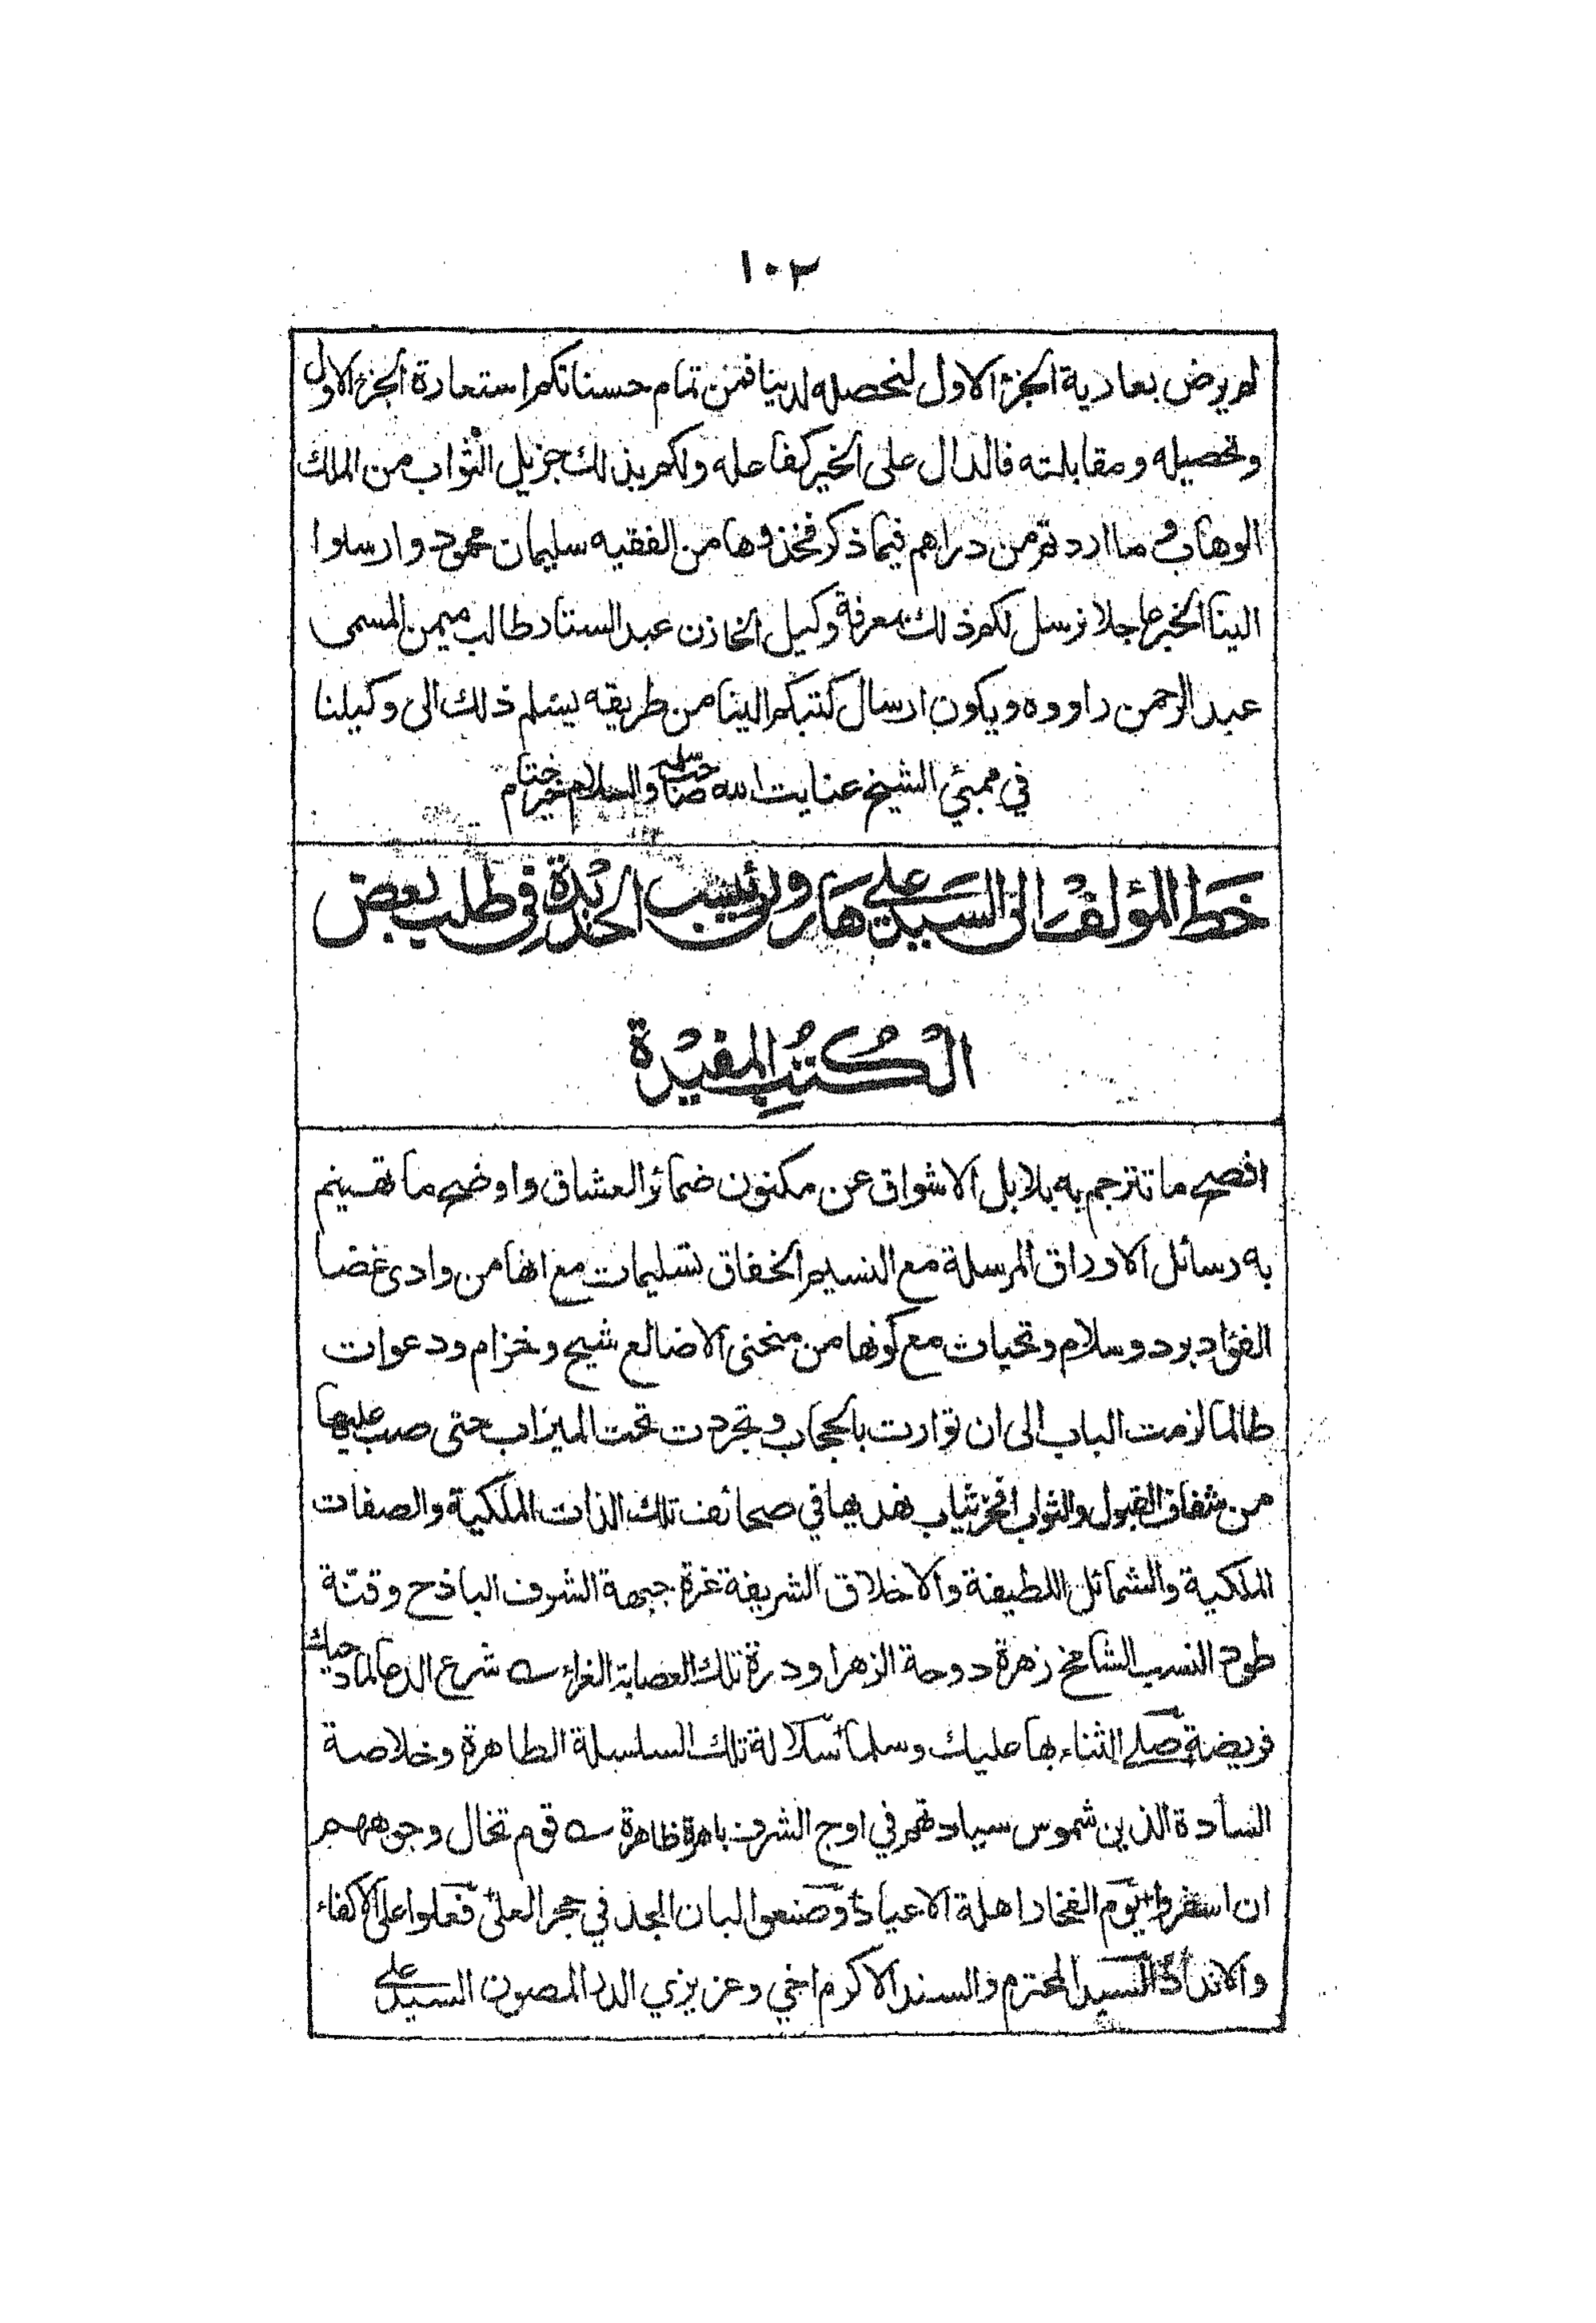 ١٠٣
لم يرض بعارية الجزء الاول لنحصله لدينا فمن تمام حسناتكم استعارة الجزء الاول
وتحصيله ومقابلته فالدال على الخير كفاعله ولكم بذلك جزيل الثواب من الملك
الوهاب وما اردتم من دراهم فيما ذكر فخذوها من الفقيه سليمان محمود وارسلوا
الينا الخبر عاجلا نرسل لكم ذلك بمعرفة وكيل الخازن عبد الستار طالب ميمن المسمى
عبد الرحمن داووه ويكون ارسال كتبكم الينا من طريقه يسلم ذلك الى وكيلنا
في ممبئي الشيخ عنايت الله صاحب سلمه والسلام خير ختام
خط المؤلف الى السيد علي هارون رئيس الحديدة في طلب بعض
الكتب المفيدة
افصح ما تترجم به بلابل الاشواق عن مكنون ضمائر العشاق واوضح ما تقسيتم
به رسائل الاوراق المرسلة مع النسيم الخفاق تسليمات مع انها من وادى غضا
الفؤاد برد وسلام وتحيات مع كونها من منحنى الاضالع شيح وخزام ودعوات
طالما لزمت الباب الى ان توارت بالحجاب وتجردت تحت الميزاب حتى صب عليها
من القبول والثواب افخر ثياب نهديها في صحائف تلك الذات الملكية والصفات
الملكية والشمائل اللطيفة والاخلاق الشريفة غرة جبهة الشرف الباذح وقنّة
طود النسب الشامخ زهرة دوحة الزهرا ودرة تلك العصابة الغراء شرع الدعا لمادحيك
فريضة صلى الثناء بها عليك وسلما سلالة تلك السلسلة الطاهرة وخلاصة
السادة الذين شموس سيادتهم في اوج الشرف باهرة ظاهرة قوم تخال وجوههم
ان اسفروا يوم الفخار اهلة الاعياد وصنعوا لبان المجد في حجر العلى فعلوا على الاكفاء
والانداد السيد المحترم والسند الاكرم اخي وعزيزي الدر المصون السيد على